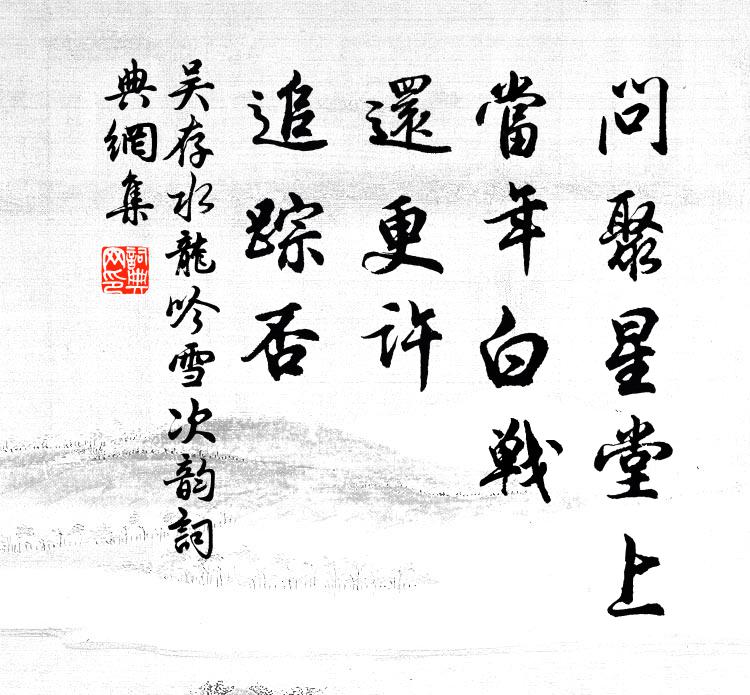 問聚星堂上
當年白戰
還更許
追踪否
吴存水龍吟雪次韵詞
典網集
詞典網印